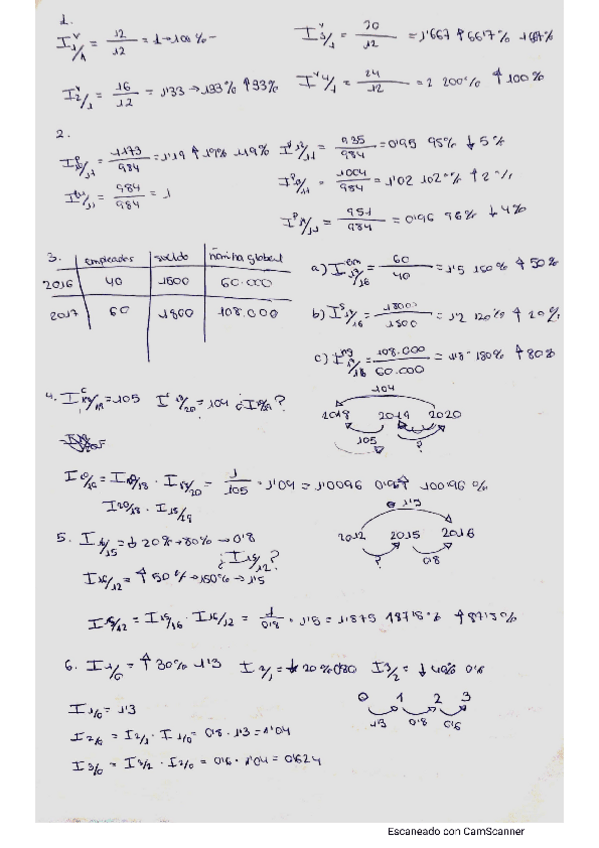 1.
I 1/1 = 12/12 = 1 → 100%
I 3/1 = 20/12 = 1'667 ↑ 66'7%
I 2/1 = 16/12 = 1'33 → 133% ↑ 33%
I 4/1 = 24/12 = 2 200% ↑ 100%
2.
= 1173/984 = 1'19 ↑ 19% 119%
= 935/984 = 0'95 95% ↓ 5%
= 984/984 = 1
= 1004/984 = 1'02 102% ↑ 2%
= 951/984 = 0'96 96% ↓ 4%
3. empleados sueldo nómina global
2016 40 1500 60.000
2017 60 1800 108.000
a) I 17/16 = 60/40 = 1'5 150% ↑ 50%
b) I 17/16 = 1800/1500 = 1'2 120% ↑ 20%
c) = 108.000/60.000 = 1'8 180% ↑ 80%
4. = 105 = 104 ?
104
2018 2019 2020
105 ?
= 1/105 · 1'04 = 1'0096 100'96%
5. = ↓ 20% → 80% → 0'8
¿I 15/12?
I 16/12 = ↑ 50% → 150% → 1'5
1'5
2012 2015 2016
? 0'8
I 15/12 = I 15/16 · I 16/12 = 1/0'8 · 1'5 = 1'875 ↑ 87'5%
6. I 1/0 = ↑ 30% 1'3 I 2/1 = ↓ 20% 0'80 I 3/2 = ↓ 40% 0'6
0 1 2 3
1'3 0'8 0'6
I 1/0 = 1'3
I 2/0 = I 2/1 · I 1/0 = 0'8 · 1'3 = 1'04
I 3/0 = I 3/2 · I 2/0 = 0'6 · 1'04 = 0'624
Escaneado con CamScanner